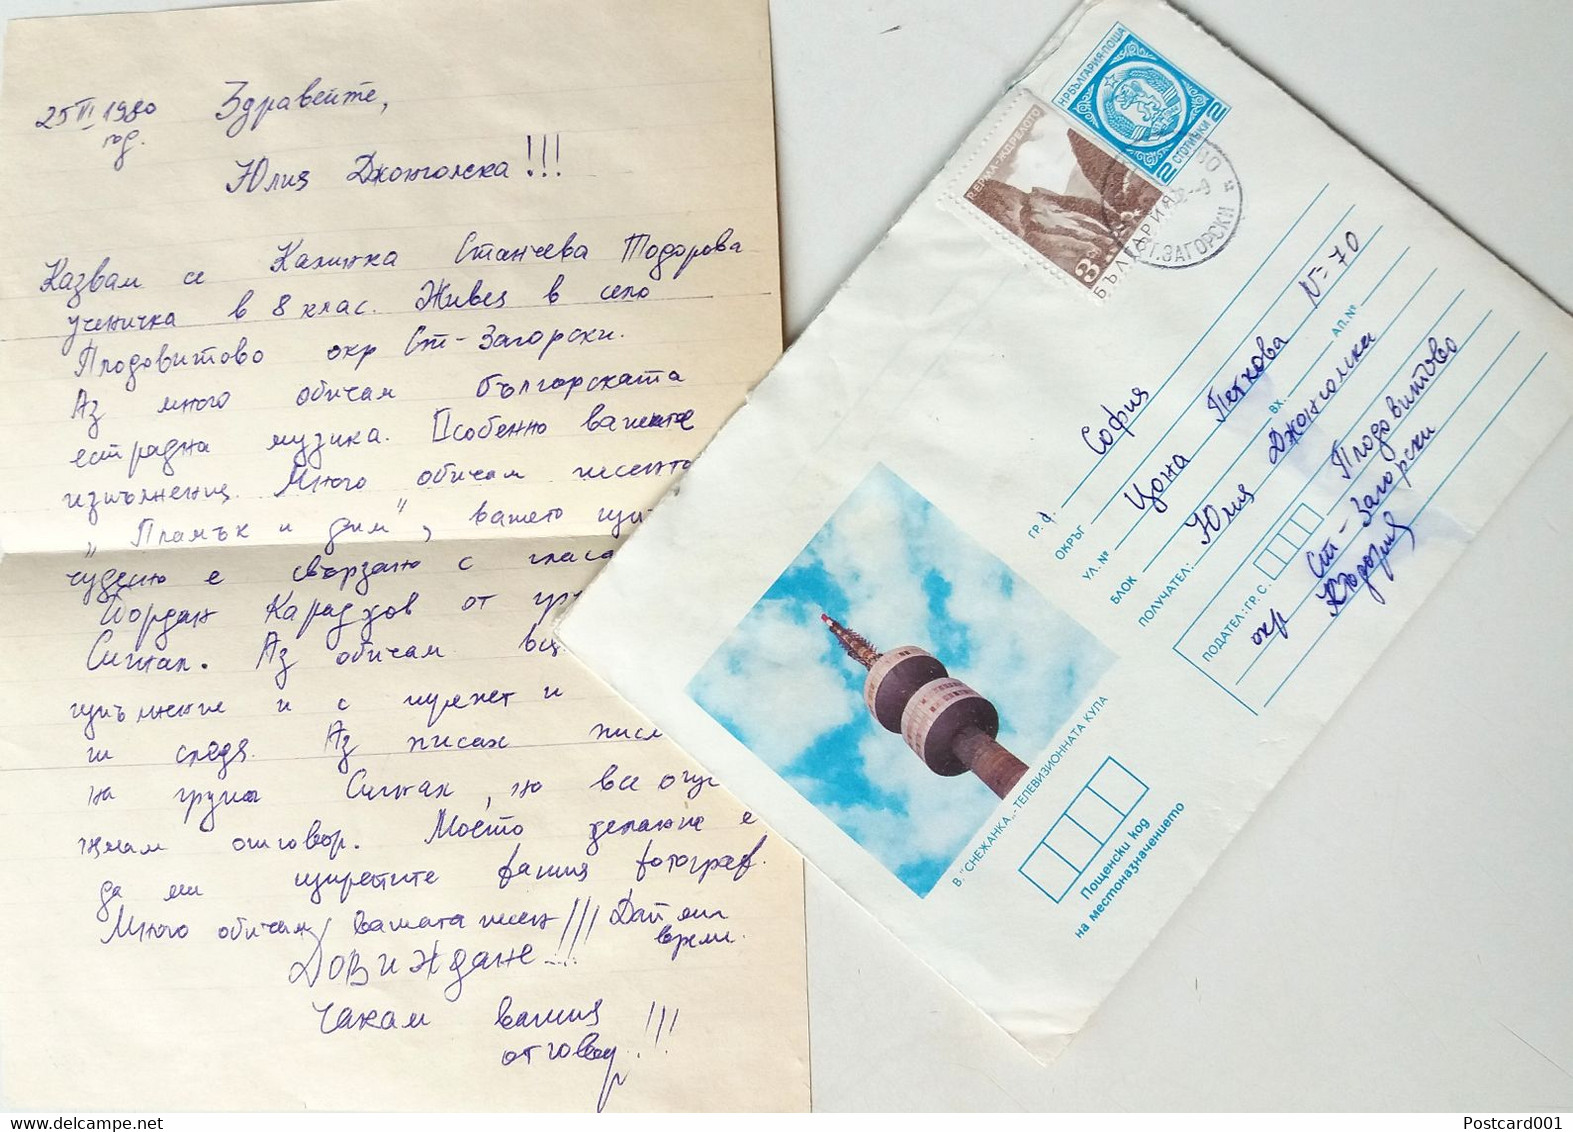 25 VI 1980
год.
Здравейте,
Юлия Джонголска!!!
Казвам се Калинка Станчева Тодорова
ученичка в 8 клас. Живея в село
Плодовитово окр Ст-Загорски.
Аз много обичам българската
естрадна музика. Особенно вашите
изпълнения. Много обичам песента
„Пламък и дим", вашето
чудесно е свързано с гласа
Йордан Караджов от
Сигнал. Аз обичам
и с
ги следя. Аз писах
на група Сигнал, но все още
нямам отговор. Моето желание е
да ми изпратите вашия фотограф.
Много обичам вашата песен!!! Дай ми
време.
ДОВиЖдане...
Чакам вашия
отговор.!!!
НР БЪЛГАРИЯ·ПОЩА
2 СТОТИНКИ 2
Р. ЕРМА-ЖДРЕЛОТО
3
БЪЛГАРИЯ
СТ.ЗАГОРСКИ
ГР. С. София
ОКРЪГ
УЛ. № Цона Петкова N-70
БЛОК ВХ. АП. №
ПОЛУЧАТЕЛ: Юлия Джонголска
ПОДАТЕЛ: ГР. С. Плодовитово
окр Ст-Загорски
В. "СНЕЖАНКА„-ТЕЛЕВИЗИОННАТА КУЛА
Пощенски код
на местоназначението
Postcard001